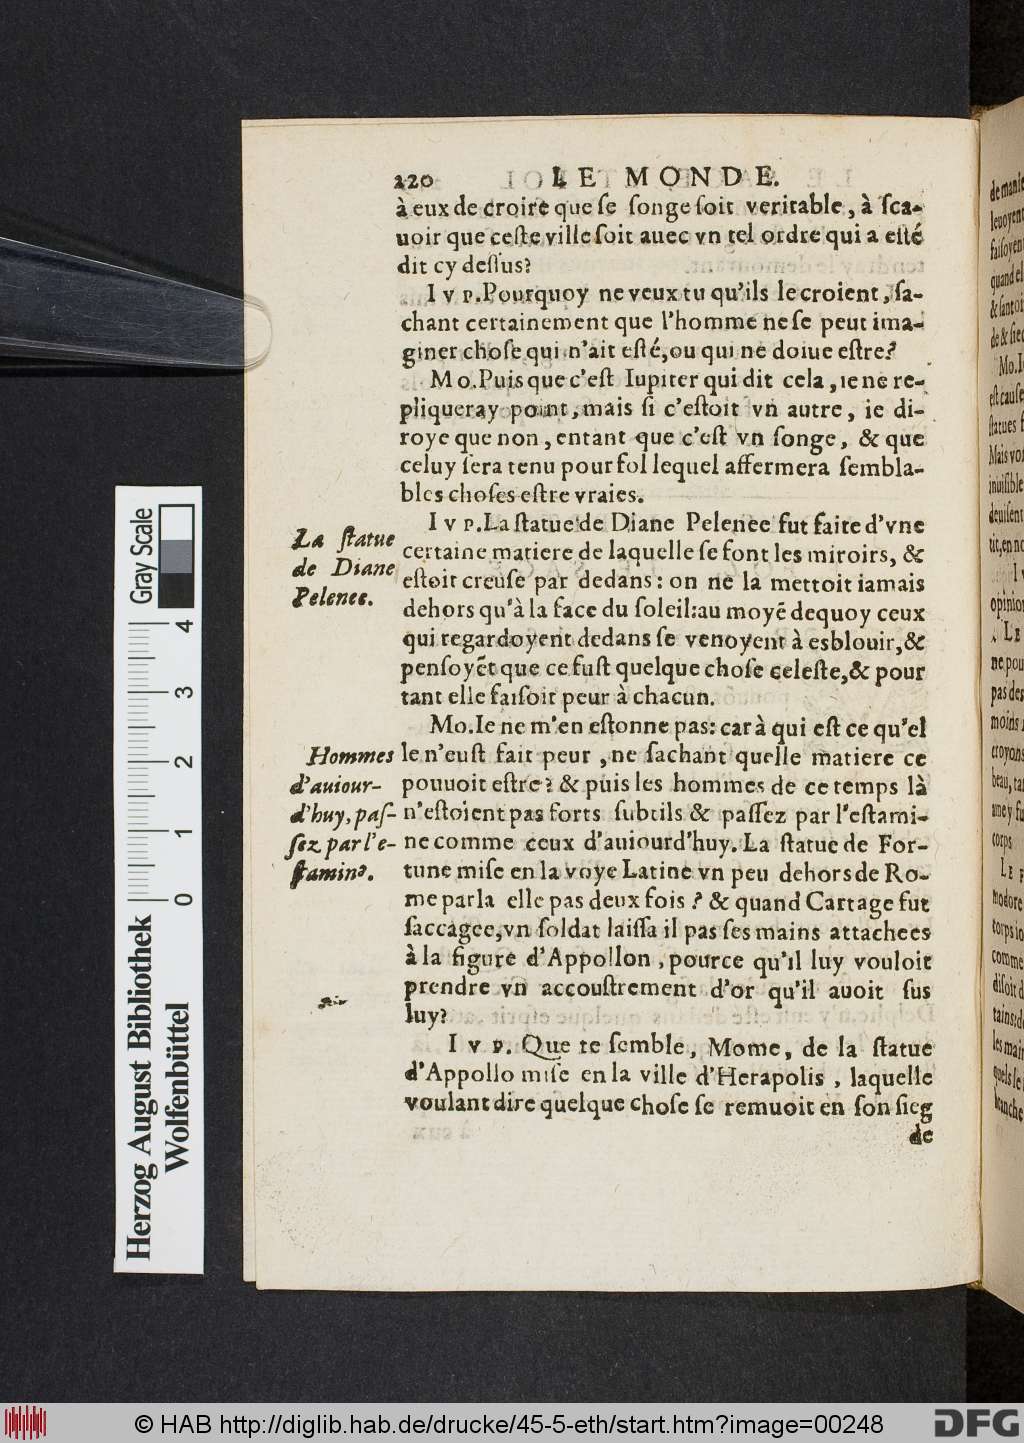 220 LE MONDE.
à eux de croire que ſe ſonge ſoit veritable, à ſca-
uoir que ceſte ville ſoit auec vn tel ordre qui a eſté
dit cy deſſus?
IVP. Pourquoy ne veux tu qu'ils le croient, ſa-
chant certainement que l'homme ne ſe peut ima-
giner choſe qui n'ait eſté, ou qui ne doiue eſtre?
Mo. Puis que c'eſt Iupiter qui dit cela, ie ne re-
pliqueray point, mais ſi c'eſtoit vn autre, ie di-
roye que non, entant que c'eſt vn ſonge, & que
celuy ſera tenu pour fol lequel affermera ſembla-
bles choſes eſtre vraies.
IVP. La ſtatue de Diane Pelenee fut faite d'vne
certaine matiere de laquelle ſe font les miroirs, &
eſtoit creuſe par dedans: on ne la mettoit iamais
dehors qu'à la face du ſoleil: au moyẽ dequoy ceux
qui regardoyent dedans ſe venoyent à esblouir, &
penſoyẽt que ce fuſt quelque choſe celeſte, & pour
tant elle faiſoit peur à chacun.
La ſtatue
de Diane
Pelenee.
Mo. Ie ne m'en eſtonne pas: car à qui eſt ce qu'el
le n'euſt fait peur, ne ſachant quelle matiere ce
pouuoit eſtre? & puis les hommes de ce temps là
n'eſtoient pas forts ſubtils & paſſez par l'eſtami-
ne comme ceux d'auiourd'huy. La ſtatue de For-
tune miſe en la voye Latine vn peu dehors de Ro-
me parla elle pas deux fois? & quand Cartage fut
ſaccagee, vn ſoldat laiſſa il pas ſes mains attachees
à la figure d'Appollon, pource qu'il luy vouloit
prendre vn accouſtrement d'or qu'il auoit ſus
luy?
Hommes
d'auiour-
d'huy, paſ-
ſez par l'e-
ſtamine.
IVP. Que te ſemble, Mome, de la ſtatue
d'Appollo miſe en la ville d'Herapolis, laquelle
voulant dire quelque choſe ſe remuoit en ſon ſieg
de
Gray Scale
0 1 2 3 4
Herzog August Bibliothek
Wolfenbüttel
© HAB http://diglib.hab.de/drucke/45-5-eth/start.htm?image=00248
DFG